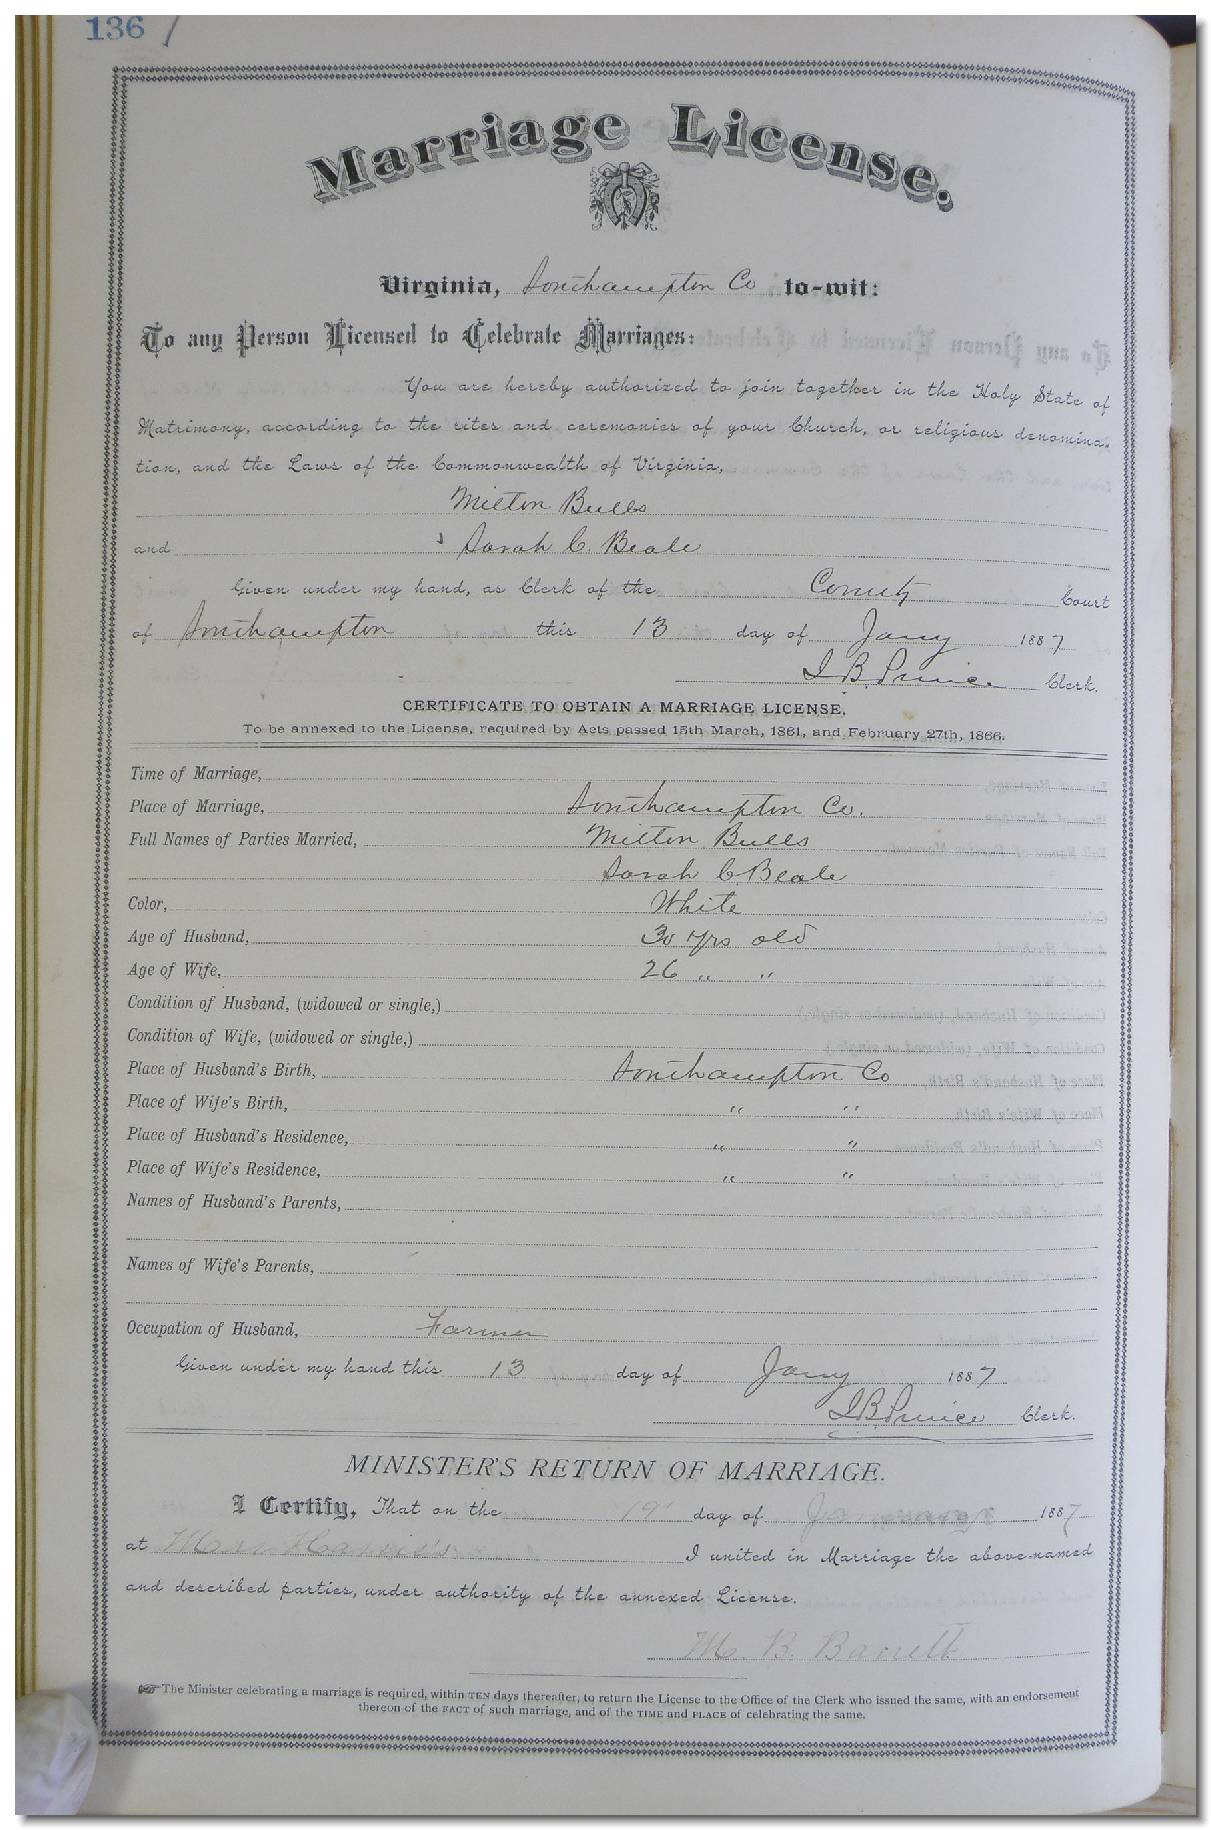 136 /
Marriage License.
Virginia, Southampton Co to-wit:
To any Person Licensed to Celebrate Marriages:
You are hereby authorized to join together in the Holy State of
Matrimony, according to the rites and ceremonies of your Church, or religious denomina-
tion, and the Laws of the Commonwealth of Virginia,
Milton Bulls
and Sarah C. Beale
Given under my hand, as Clerk of the County Court
of Southampton this 13 day of Jany 1887
Clerk.
CERTIFICATE TO OBTAIN A MARRIAGE LICENSE,
To be annexed to the License, required by Acts passed 15th March, 1861, and February 27th, 1866.
Time of Marriage,
Place of Marriage, Southampton Co.
Full Names of Parties Married, Milton Bulls
Sarah C. Beale
Color, White
Age of Husband, 30 yrs old
Age of Wife, 26 " "
Condition of Husband, (widowed or single,)
Condition of Wife, (widowed or single,)
Place of Husband's Birth, Southampton Co
Place of Wife's Birth, " "
Place of Husband's Residence, " "
Place of Wife's Residence, " "
Names of Husband's Parents,
Names of Wife's Parents,
Occupation of Husband, Farmer
Given under my hand this 13 day of Jany 1887
Clerk.
MINISTER'S RETURN OF MARRIAGE.
I Certify, That on the 19 day of 1887
at I united in Marriage the above-named
and described parties, under authority of the annexed License.
M. B. Barrett
☞ The Minister celebrating a marriage is required, within TEN days thereafter, to return the License to the Office of the Clerk who issued the same, with an endorsement
thereon of the FACT of such marriage, and of the TIME and PLACE of celebrating the same.